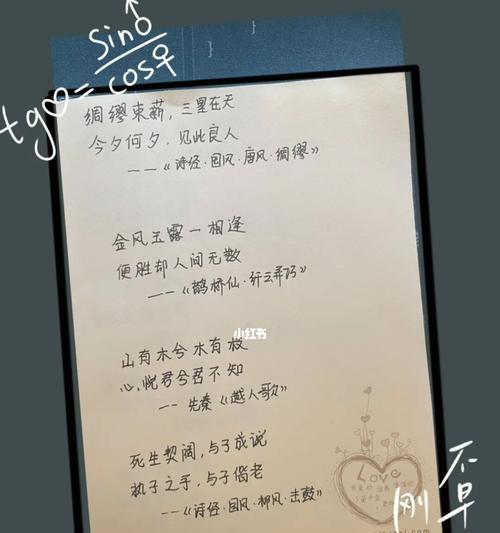 tg♡=sin♂/cos♀
绸缪束薪，三星在天
今夕何夕，见此良人
——《诗经·国风·唐风·绸缪》
金风玉露一相逢
便胜却人间无数
——《鹊桥仙·纤云弄巧》
小红书
山有木兮木有枝
心悦君兮君不知
——先秦《越人歌》
死生契阔，与子成说
执子之手，与子偕老
——《诗经·国风·邶风·击鼓》
Love
刚
不早